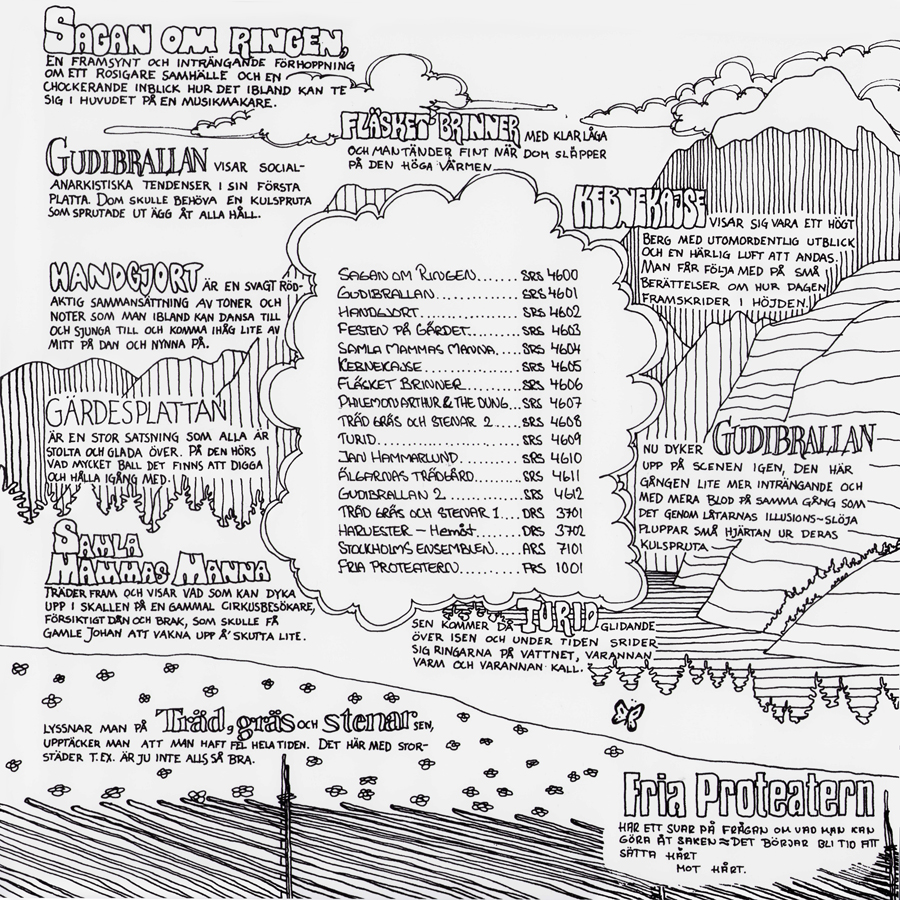 SAGAN OM RINGEN,
EN FRAMSYNT OCH INTRÄNGANDE FÖRHOPPNING
OM ETT ROSIGARE SAMHÄLLE OCH EN
CHOCKERANDE INBLICK HUR DET IBLAND KAN TE
SIG I HUVUDET PÅ EN MUSIKMAKARE.
FLÄSKET BRINNER MED KLAR LÅGA
OCH MAN TÄNDER FINT NÄR DOM SLÄPPER
PÅ DEN HÖGA VÄRMEN
GUDIBRALLAN VISAR SOCIAL-
ANARKISTISKA TENDENSER I SIN FÖRSTA
PLATTA. DOM SKULLE BEHÖVA EN KULSPRUTA
SOM SPRUTADE UT ÄGG ÅT ALLA HÅLL.
KEBNEKAJSE VISAR SIG VARA ETT HÖGT
BERG MED UTOMORDENTLIG UTBLICK
OCH EN HÄRLIG LUFT ATT ANDAS.
MAN FÅR FÖLJA MED PÅ SMÅ
BERÄTTELSER OM HUR DAGEN
FRAMSKRIDER I HÖJDEN.
HANDGJORT ÄR EN SVAGT RÖD-
AKTIG SAMMANSÄTTNING AV TONER OCH
NOTER SOM MAN IBLAND KAN DANSA TILL
OCH SJUNGA TILL OCH KOMMA IHÅG LITE AV
MITT PÅ DAN OCH NYNNA PÅ.
SAGAN OM RINGEN....... SRS 4600
GUDIBRALLAN............ SRS 4601
HANDGJORT.............. SRS 4602
FESTEN PÅ GÄRDET....... SRS 4603
SAMLA MAMMAS MANNA..... SRS 4604
KEBNEKAJSE............. SRS 4605
FLÄSKET BRINNER........ SRS 4606
PHILEMON ARTHUR & THE DUNG... SRS 4607
TRÄD GRÄS OCH STENAR 2.... SRS 4608
TURID.................. SRS 4609
JAN HAMMARLUND......... SRS 4610
ÄLGARNAS TRÄDGÅRD...... SRS 4611
GUDIBRALLAN 2.......... SRS 4612
TRÄD GRÄS OCH STENAR 1.... DRS 3701
HARVESTER – Hemåt...... DRS 3702
STOCKHOLMS ENSEMBLEN... ARS 7101
FRIA PROTEATERN........ FRS 1001
GÄRDESPLATTAN
ÄR EN STOR SATSNING SOM ALLA ÄR
STOLTA OCH GLADA ÖVER. PÅ DEN HÖRS
VAD MYCKET BALL DET FINNS ATT DIGGA
OCH HÅLLA IGÅNG MED.
NU DYKER GUDIBRALLAN
UPP PÅ SCENEN IGEN, DEN HÄR
GÅNGEN LITE MER INTRÄNGANDE OCH
MED MERA BLOD PÅ SAMMA GÅNG SOM
DET GENOM LÅTARNAS ILLUSIONS~SLÖJA
PLUPPAR SMÅ HJÄRTAN UR DERAS
KULSPRUTA
SAMLA
MAMMAS MANNA
TRÄDER FRAM OCH VISAR VAD SOM KAN DYKA
UPP I SKALLEN PÅ EN GAMMAL CIRKUSBESÖKARE,
FÖRSIKTIGT DÅN OCH BRAK, SOM SKULLE FÅ
GAMLE JOHAN ATT VAKNA UPP Å' SKUTTA LITE.
SEN KOMMER DÅ TURID GLIDANDE
ÖVER ISEN OCH UNDER TIDEN SRIDER
SIG RINGARNA PÅ VATTNET, VARANNAN
VARM OCH VARANNAN KALL.
LYSSNAR MAN PÅ Träd, gräs OCH stenar SEN,
UPPTÄCKER MAN ATT MAN HAFT FEL HELA TIDEN. DET HÄR MED STOR-
STÄDER T.EX. ÄR JU INTE ALLS SÅ BRA.
Fria Proteatern
HAR ETT SVAR PÅ FRÅGAN OM VAD MAN KAN
GÖRA ÅT SAKEN ≈ DET BÖRJAR BLI TID ATT
SÄTTA HÅRT
MOT HÅRT.